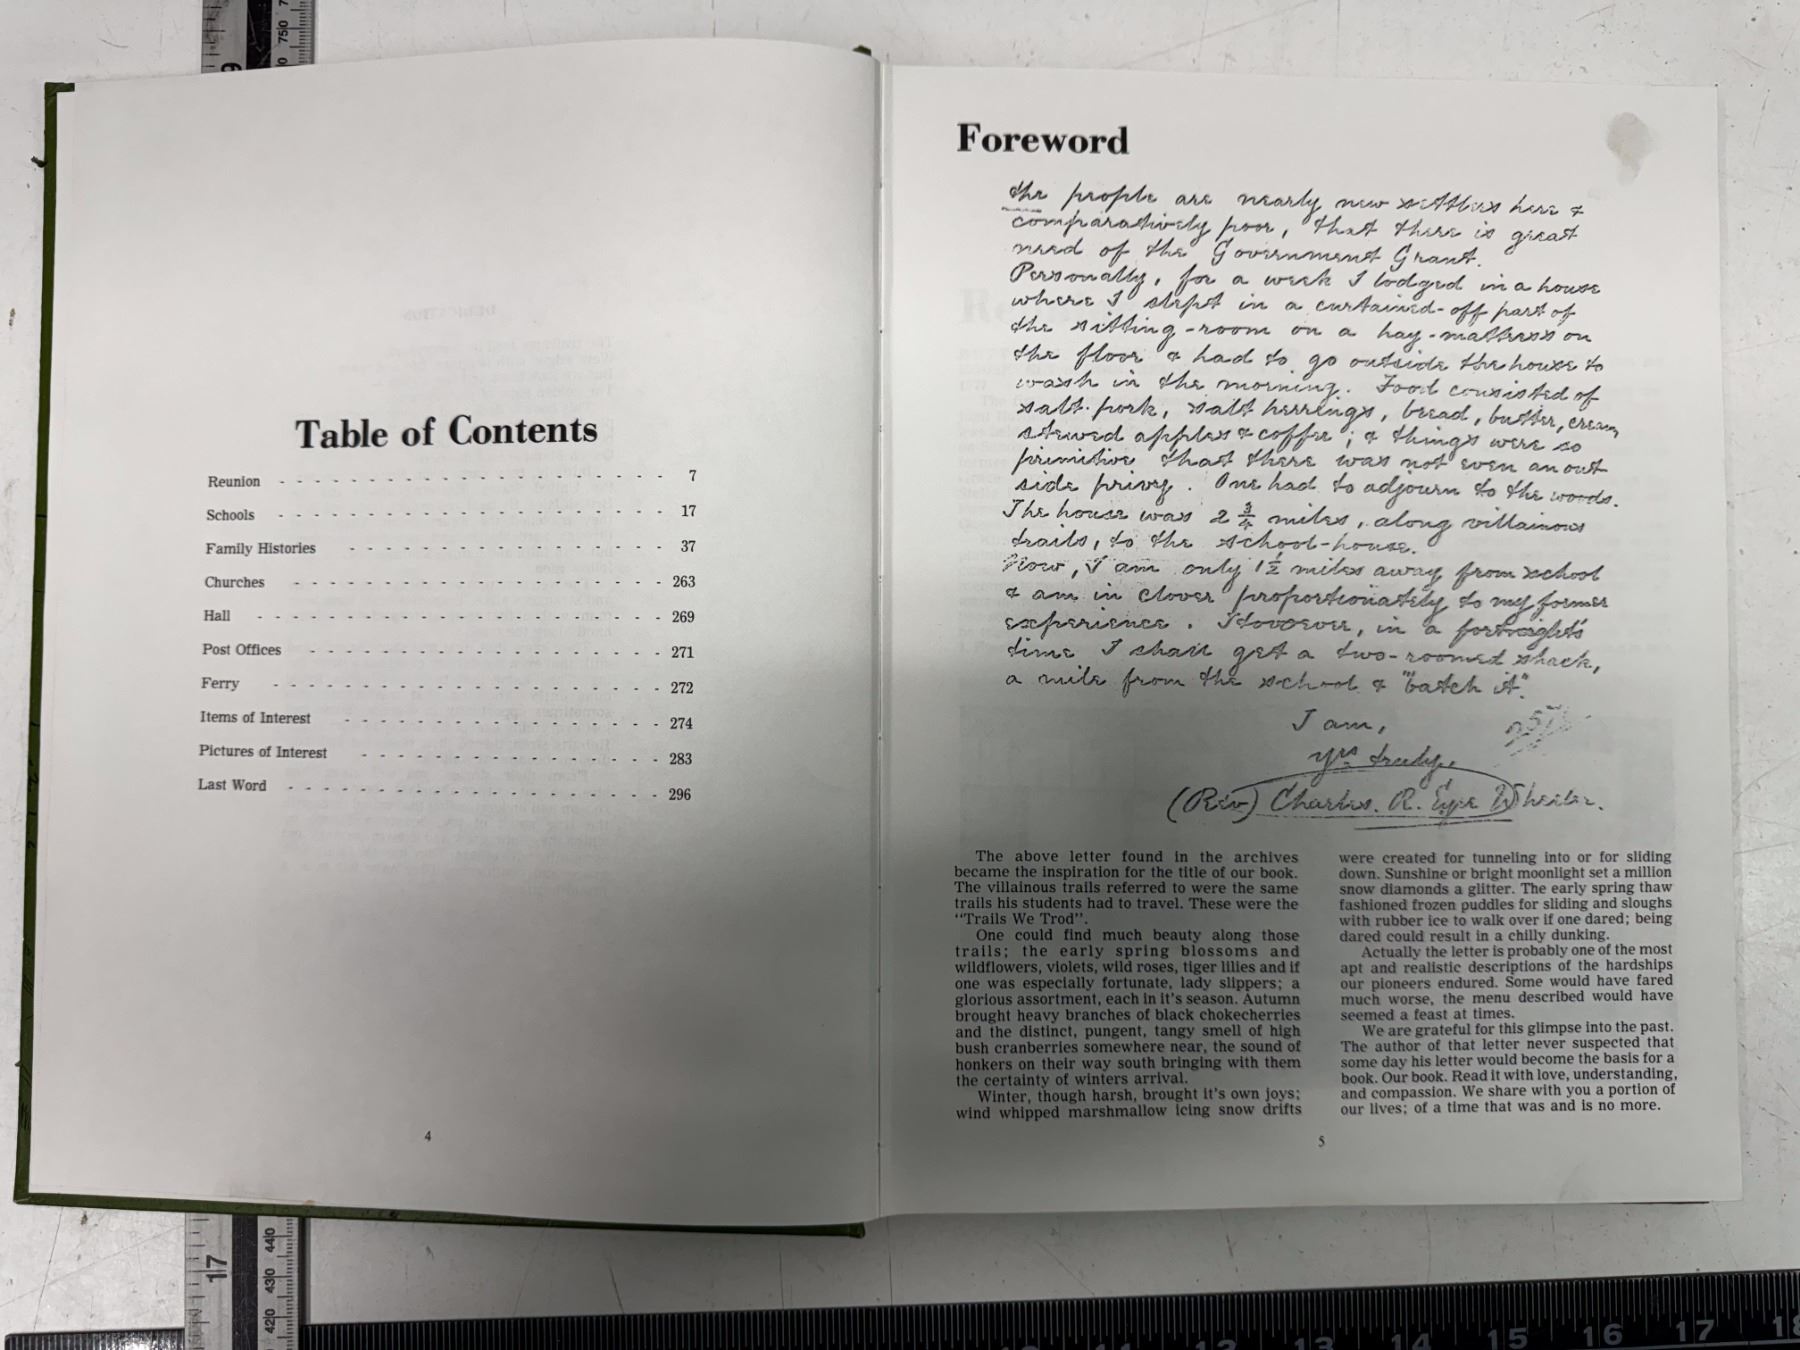 Table of Contents
Reunion - - - - - - - - - - - - - - - - - - 7
Schools - - - - - - - - - - - - - - - - - - 17
Family Histories - - - - - - - - - - - - - - - 37
Churches - - - - - - - - - - - - - - - - - 263
Hall - - - - - - - - - - - - - - - - - - - 269
Post Offices - - - - - - - - - - - - - - - - 271
Ferry - - - - - - - - - - - - - - - - - - 272
Items of Interest - - - - - - - - - - - - - - - 274
Pictures of Interest - - - - - - - - - - - - - - 283
Last Word - - - - - - - - - - - - - - - - - 296
4
Foreword
the people are nearly new settlers here &
comparatively poor, that there is great
need of the Government Grant.
Personally, for a week I lodged in a house
where I slept in a curtained-off part of
the sitting-room on a hay-mattress on
the floor & had to go outside the house to
wash in the morning. Food consisted of
salt-pork, salt herrings, bread, butter, cream
stewed apples & coffee; & things were so
primitive that there was not even an out
side privy. One had to adjourn to the woods.
The house was 2 3/4 miles, along villainous
trails, to the school-house.
Now, I am only 1 1/2 miles away from school
& am in clover proportionately to my former
experience. However, in a fortnight's
time I shall get a two-roomed shack,
a mile from the school & "batch it".
I am,
Yrs truly,
(Rev) Charles. R. Eyre Wheeler.
The above letter found in the archives
became the inspiration for the title of our book.
The villainous trails referred to were the same
trails his students had to travel. These were the
"Trails We Trod".
One could find much beauty along those
trails; the early spring blossoms and
wildflowers, violets, wild roses, tiger lilies and if
one was especially fortunate, lady slippers; a
glorious assortment, each in it's season. Autumn
brought heavy branches of black chokecherries
and the distinct, pungent, tangy smell of high
bush cranberries somewhere near, the sound of
honkers on their way south bringing with them
the certainty of winters arrival.
Winter, though harsh, brought it's own joys;
wind whipped marshmallow icing snow drifts
were created for tunneling into or for sliding
down. Sunshine or bright moonlight set a million
snow diamonds a glitter. The early spring thaw
fashioned frozen puddles for sliding and sloughs
with rubber ice to walk over if one dared; being
dared could result in a chilly dunking.
Actually the letter is probably one of the most
apt and realistic descriptions of the hardships
our pioneers endured. Some would have fared
much worse, the menu described would have
seemed a feast at times.
We are grateful for this glimpse into the past.
The author of that letter never suspected that
some day his letter would become the basis for a
book. Our book. Read it with love, understanding,
and compassion. We share with you a portion of
our lives; of a time that was and is no more.
5
750
17
440
430
420
13
14
15
16
17